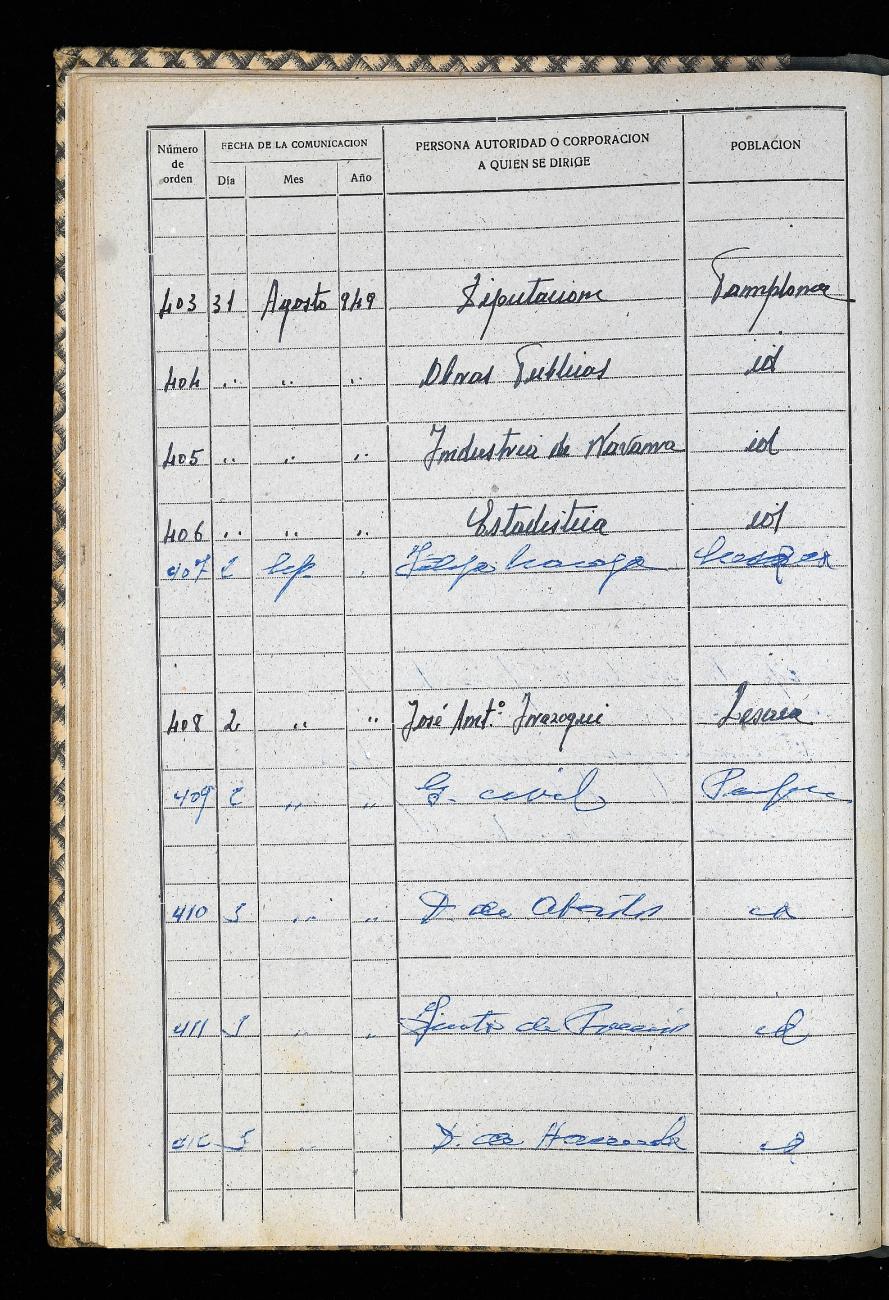 Número de orden FECHA DE LA COMUNICACION PERSONA AUTORIDAD O CORPORACION A QUIEN SE DIRIGE POBLACION
Día Mes Año
403 31 Agosto 949 Diputacion Pamplona
404 .. .. .. Obras Publicas id
405 .. .. .. Industria de Navarra id
406 .. .. .. Estadistica id
407 2 Sep .
408 2 .. .. José Antº. Irazoqui Lesaca
409 2 .. .. G. civil Pamplona
410 3 .. .. D. de Abastos id
411 3 .. .. Junta de Precios id
412 5 .. D. de Hacienda id